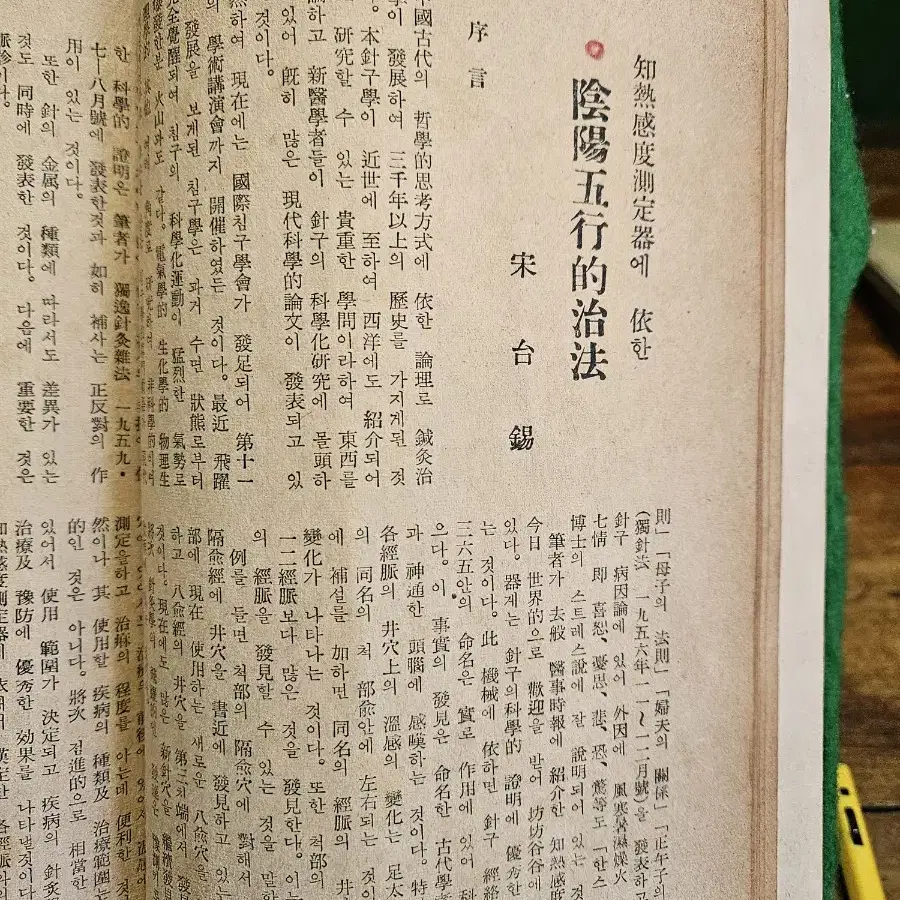 知熱感度測定器에 依한
陰陽五行的治法
宋台錫
序言
中國古代의 哲學的思考方式에 依한 論理로 鍼灸治
學이 發展하여 三千年以上의 歷史를 가지게된 것
다。本針구學이 近世에 至하여 西洋에도 紹介되어
研究할 수 있는 貴重한 學問이라하여 東西를
論하고 新醫學者들이 針구의 科學化研究에 몰頭하
있어 旣히 많은 現代科學的論文이 發表되고 있
것이다。
然하여 現在에는 國際침구學會가 發足되어 第十一
學術講演會까지 開催하였든 것이다。最近 飛躍
發展을 보게된 침구學은 과거 수면 狀態로부터
完全覺醒되여 침구의 科學化運動이 猛烈한 氣勢로
火山과도 같다。電氣學的 生化學的 物理生
則」「母子의 法則」「婦夫의 關係」「正午子의
(獨針法 一九五六年一一~一二月號)을 發表하고
針구 病因論에 있어 外因에 風寒暑濕燥火
七情 即 喜怒、憂思、悲、恐、驚等도 「한스
博士의 스트레스說에 한 說明되어 있는 것
筆者가 去般 醫事時報에 紹介한 知熱感度
今日 世界的으로 歡迎을 받어 坊坊谷谷에
있다。器계는 針구의科學的 證明에 優秀한
는 것이다。此 機械에 依하면 針구 經絡
三六五안의 命名은 實로 作用에 있어 科
으다。이 事實의 發見은 命名한 古代學者
과 神通한 頭腦에 感嘆하는 것이다。特
各經脈의 井穴上의 溫感의 變化는 足太
의 同名의 척 部兪안에 左右되는 것이
에 補설를 加하면 同名의 經脈의 井
變化가 나타나는 것이다。또한 척部의
一二經脈보다 많은 것을 發見한다。이는
의 經脈을 發見할 수 있는 것을 말한
例를 들면 척部의 隔兪穴에 對해서
隔兪經에 井穴을 書近에 發見하고 있는
部에 現在 使用하는 새로운 八兪穴을
하고 八兪經의 井穴을 第三지端에서 發見
한 科學的 證明은 筆者가 獨逸針灸雜法 一九五九・
七~八月號에 發表한것과 如히 補사는 正反對의 作
用이 있는 것이다。
또한 針의 金属의 種類에 따라서도 差異가 있는
것도 同時에 發表한 것이다。다음에 重要한 것은
脈診이다。
測定을하고 治療의 程度를 아는데 便利한 것
然이나 其 使用할 疾病의 種類及 治療範圍는
的인 것은 아니다。將次 점進的으로 相當한
있어서 使用 範圍가 決定되고 疾病의 針灸
治療及 豫防에 優秀한 効果를 나타낼것이다